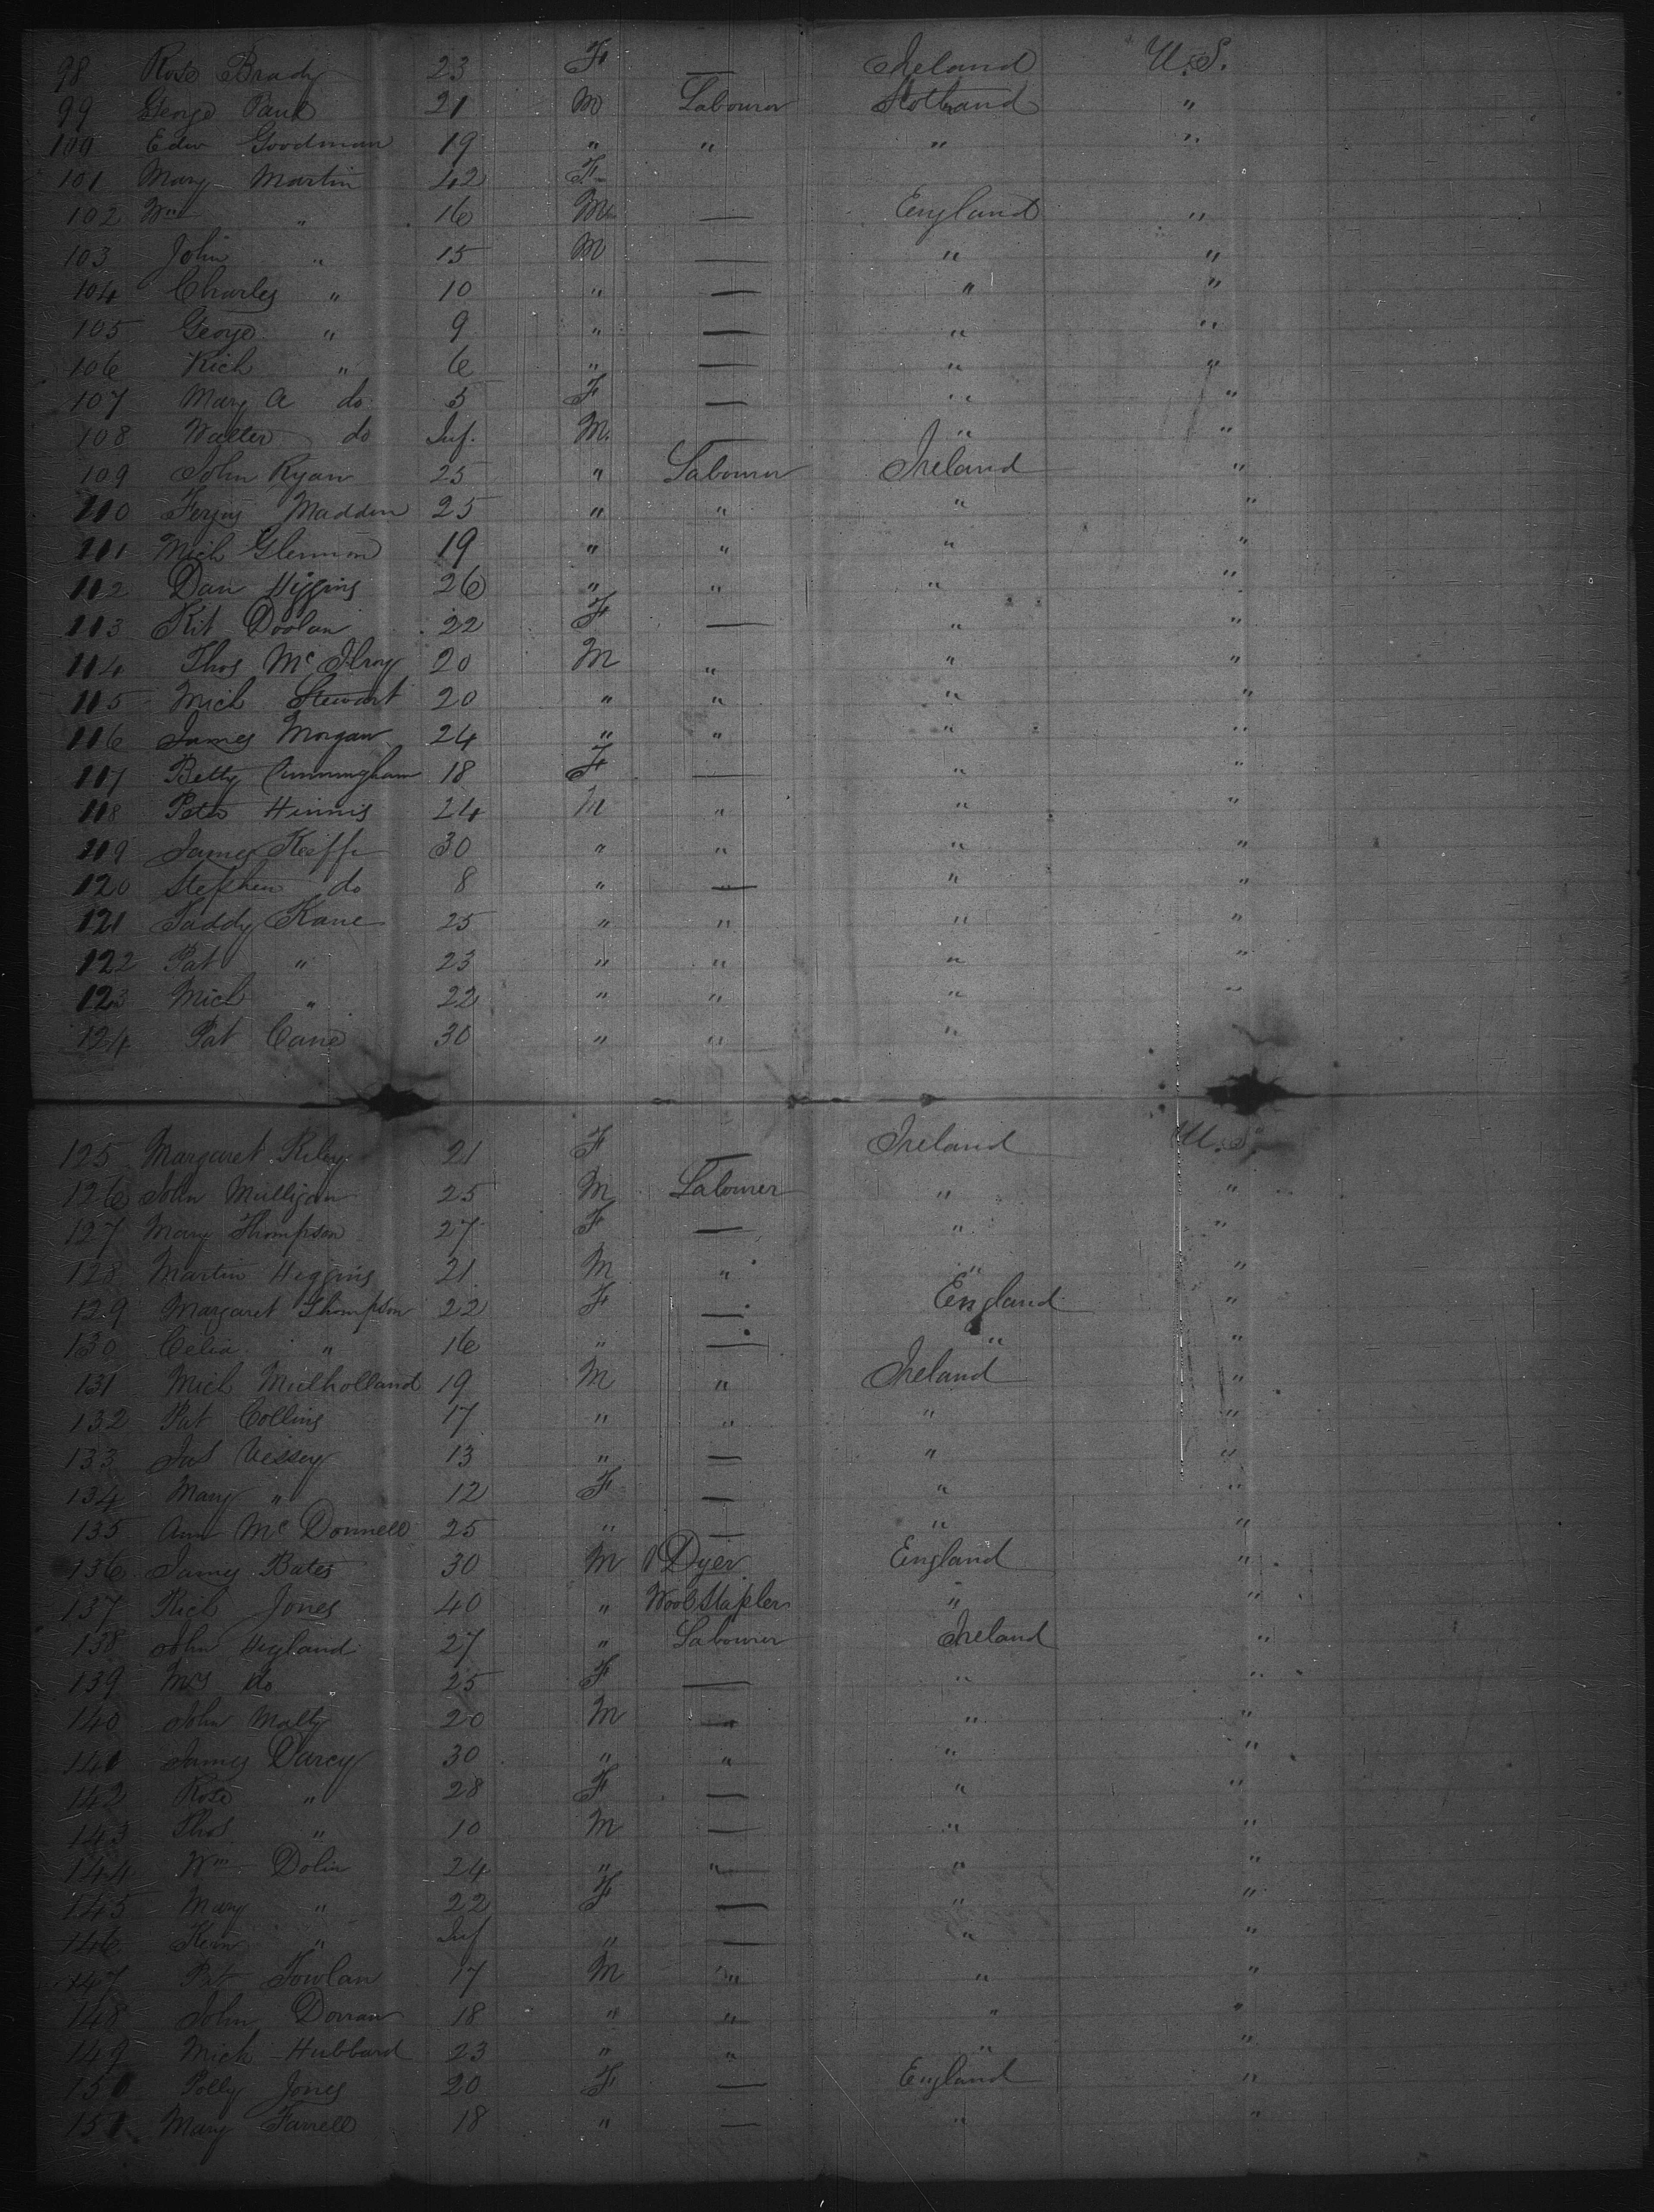 98 Rose Brady 23 F — Ireland U.S.
99 George Paul 21 M Labourer Scotland "
100 Edw Goodman 19 " " " "
101 Mary Martin 42 F
102 Wm " 16 M — England "
103 John " 15 M — " "
104 Charles " 10 " — " "
105 George " 9 " — " "
106 Rich " 6 " — " "
107 Mary A do 5 F — " "
108 Walter do Inf. M — " "
109 John Ryan 25 " Labourer Ireland "
110 Fergus Madden 25 " " " "
111 Mich Glennon 19 " " " "
112 Dan Higgins 26 " " " "
113 Kit Doolan 22 F — " "
114 Thos McIlroy 20 M " " "
115 Mich Stewart 20 " " " "
116 James Morgan 24 " " " "
117 Betty Cunningham 18 F — " "
118 Peter Hinnis 24 M " " "
119 James Keiffe 30 " " " "
120 Stephen do 8 " — " "
121 Paddy Kane 25 " " " "
122 Pat " 23 " " " "
123 Mich " 22 " " " "
124 Pat Cane 30 " " "
125 Margaret Riley 21 F — Ireland U.S.
126 John Mulligan 25 M Labourer " "
127 Mary Thompson 27 F — " "
128 Martin Higgins 21 M " " "
129 Margaret Thompson 22 F — England "
130 Celia " 16 " — " "
131 Mich Mulholland 19 M " Ireland "
132 Pat Collins 17 " " " "
133 Jas Vessey 13 " — " "
134 Mary " 12 F — " "
135 Ann McDonnell 25 " — " "
136 James Bates 30 M Dyer England "
137 Rich Jones 40 " Wool Stapler " "
138 John Hyland 27 " Labourer Ireland "
139 Mrs do 25 F — " "
140 John Malty 20 M " " "
141 James Darcy 30 " " " "
142 Rose " 28 F — " "
143 Thos " 10 M — " "
144 Wm Dolin 24 " " " "
145 Mary " 22 F — " "
146 " Inf " — " "
147 Pat Towlan 17 M " " "
148 John Dorran 18 " " " "
149 Mich Hubbard 23 " " " "
150 Polly Jones 20 F — England "
151 Mary Farrell 18 " — " "